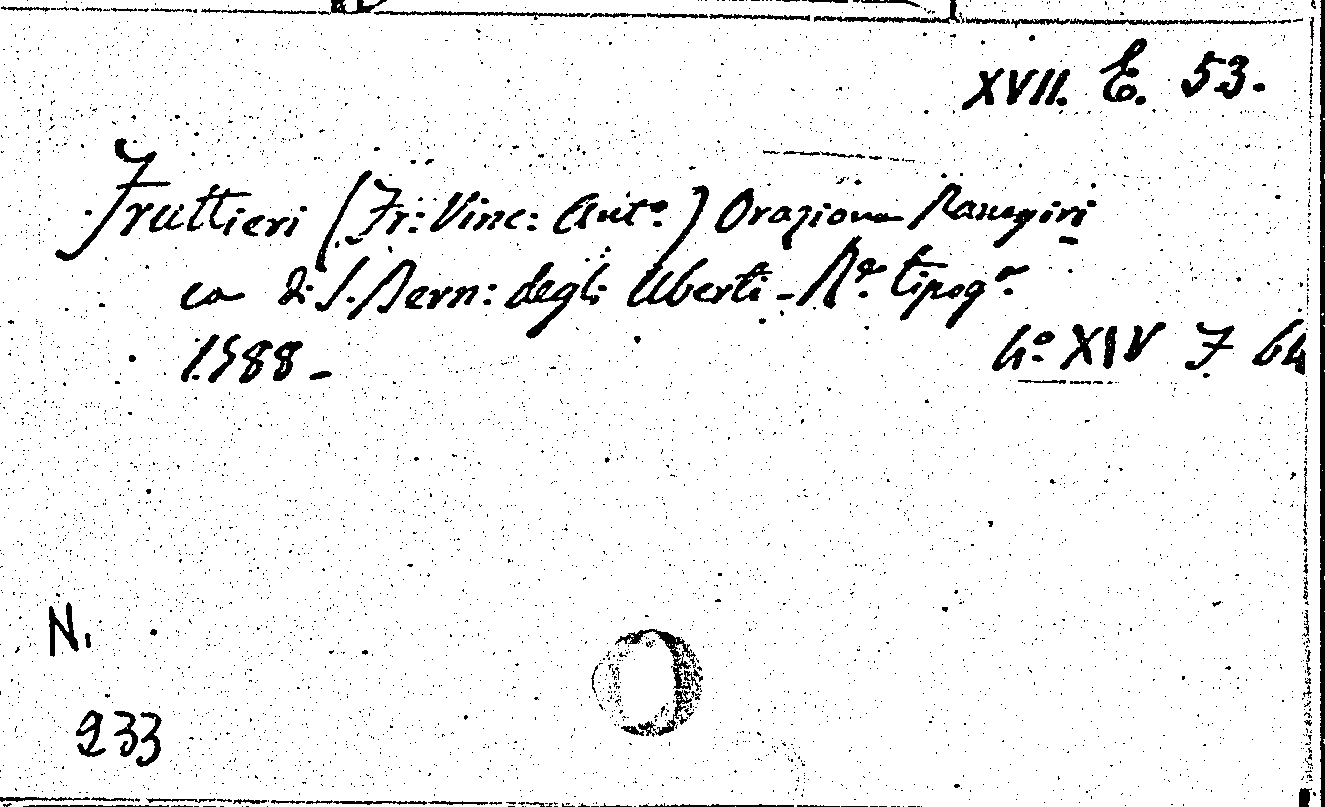 XVII. E. 53.
Fruttieri (Fr: Vinc: Ant.º) Orazione Panegiri
ca di S. Bern: degli Uberti - tipog.ª
1588 -
4.º XIV F 64
N.
233